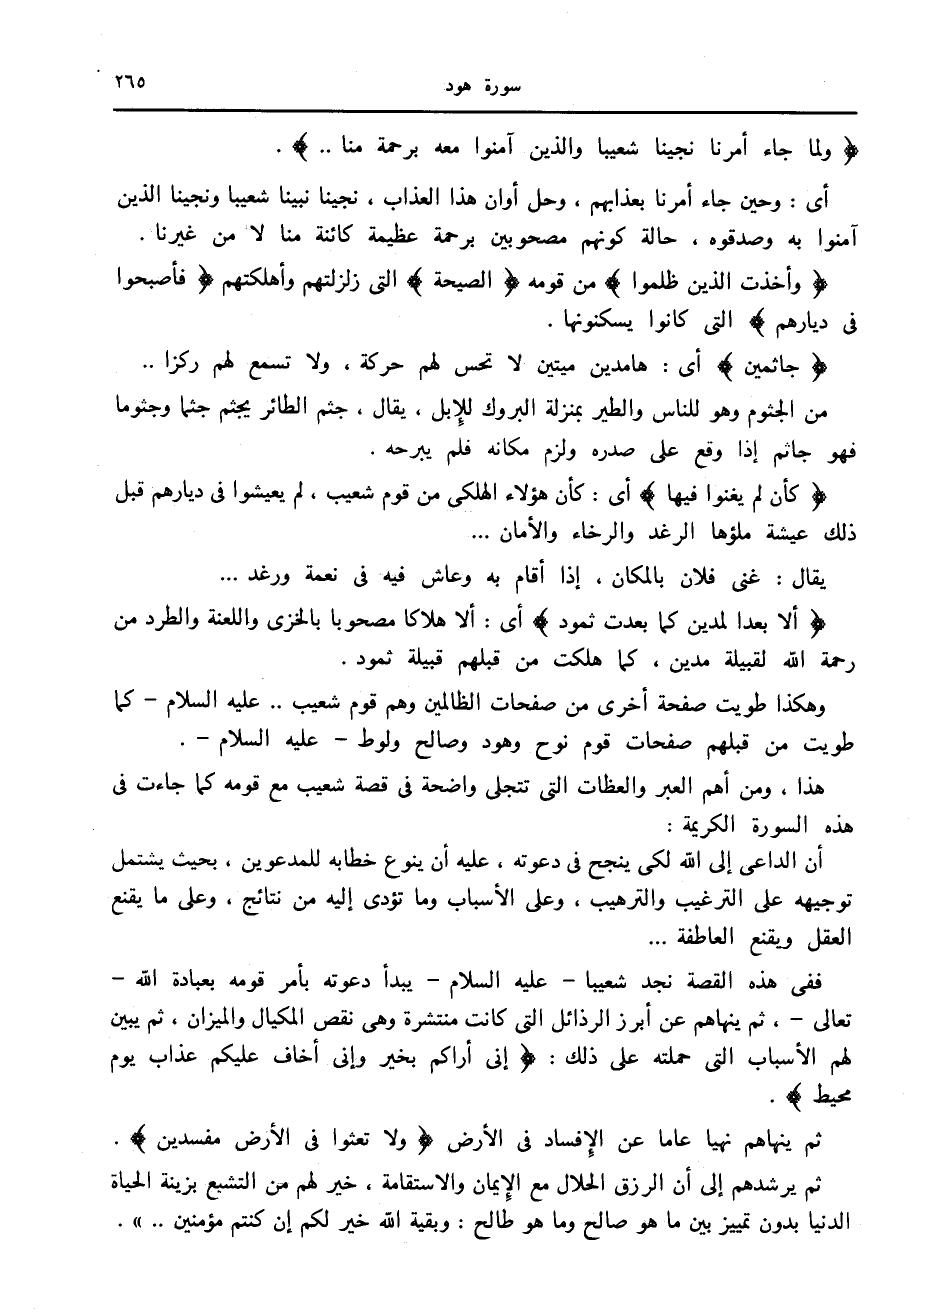 سورة هود ٢٦٥
﴿ ولما جاء أمرنا نجينا شعيبا والذين آمنوا معه برحمة منا .. ﴾ .
أى : وحين جاء أمرنا بعذابهم ، وحل أوان هذا العذاب ، نجينا نبينا شعيبا ونجينا الذين
آمنوا به وصدقوه ، حالة كونهم مصحوبين برحمة عظيمة كائنة منا لا من غيرنا .
﴿ وأخذت الذين ظلموا ﴾ من قومه ﴿ الصيحة ﴾ التى زلزلتهم وأهلكتهم ﴿ فأصبحوا
فى ديارهم ﴾ التى كانوا يسكنونها .
﴿ جاثمين ﴾ أى : هامدين ميتين لا تحس لهم حركة ، ولا تسمع لهم ركزا ..
من الجثوم وهو للناس والطير بمنزلة البروك للإبل ، يقال ، جثم الطائر يجثم جثما وجثوما
فهو جاثم إذا وقع على صدره ولزم مكانه فلم يبرحه .
﴿ كأن لم يغنوا فيها ﴾ أى : كأن هؤلاء الهلكى من قوم شعيب ، لم يعيشوا فى ديارهم قبل
ذلك عيشة ملؤها الرغد والرخاء والأمان ...
يقال : غنى فلان بالمكان ، إذا أقام به وعاش فيه فى نعمة ورغد ...
﴿ ألا بعدا لمدين كما بعدت ثمود ﴾ أى : ألا هلاكا مصحوبا بالخزى واللعنة والطرد من
رحمة الله لقبيلة مدين ، كما هلكت من قبلهم قبيلة ثمود .
وهكذا طويت صفحة أخرى من صفحات الظالمين وهم قوم شعيب .. عليه السلام – كما
طويت من قبلهم صفحات قوم نوح وهود وصالح ولوط – عليه السلام – .
هذا ، ومن أهم العبر والعظات التى تتجلى واضحة فى قصة شعيب مع قومه كما جاءت فى
هذه السورة الكريمة :
أن الداعى إلى الله لكى ينجح فى دعوته ، عليه أن ينوع خطابه للمدعوين ، بحيث يشتمل
توجيهه على الترغيب والترهيب ، وعلى الأسباب وما تؤدى إليه من نتائج ، وعلى ما يقنع
العقل ويقنع العاطفة ...
ففى هذه القصة نجد شعيبا – عليه السلام – يبدأ دعوته بأمر قومه بعبادة الله –
تعالى – ، ثم ينهاهم عن أبرز الرذائل التى كانت منتشرة وهى نقص المكيال والميزان ، ثم يبين
لهم الأسباب التى حملته على ذلك : ﴿ إنى أراكم بخير وإنى أخاف عليكم عذاب يوم
محيط ﴾ .
ثم ينهاهم نهيا عاما عن الإفساد فى الأرض ﴿ ولا تعثوا فى الأرض مفسدين ﴾ .
ثم يرشدهم إلى أن الرزق الحلال مع الإيمان والاستقامة ، خير لهم من التشبع بزينة الحياة
الدنيا بدون تمييز بين ما هو صالح وما هو طالح : وبقية الله خير لكم إن كنتم مؤمنين .. » .